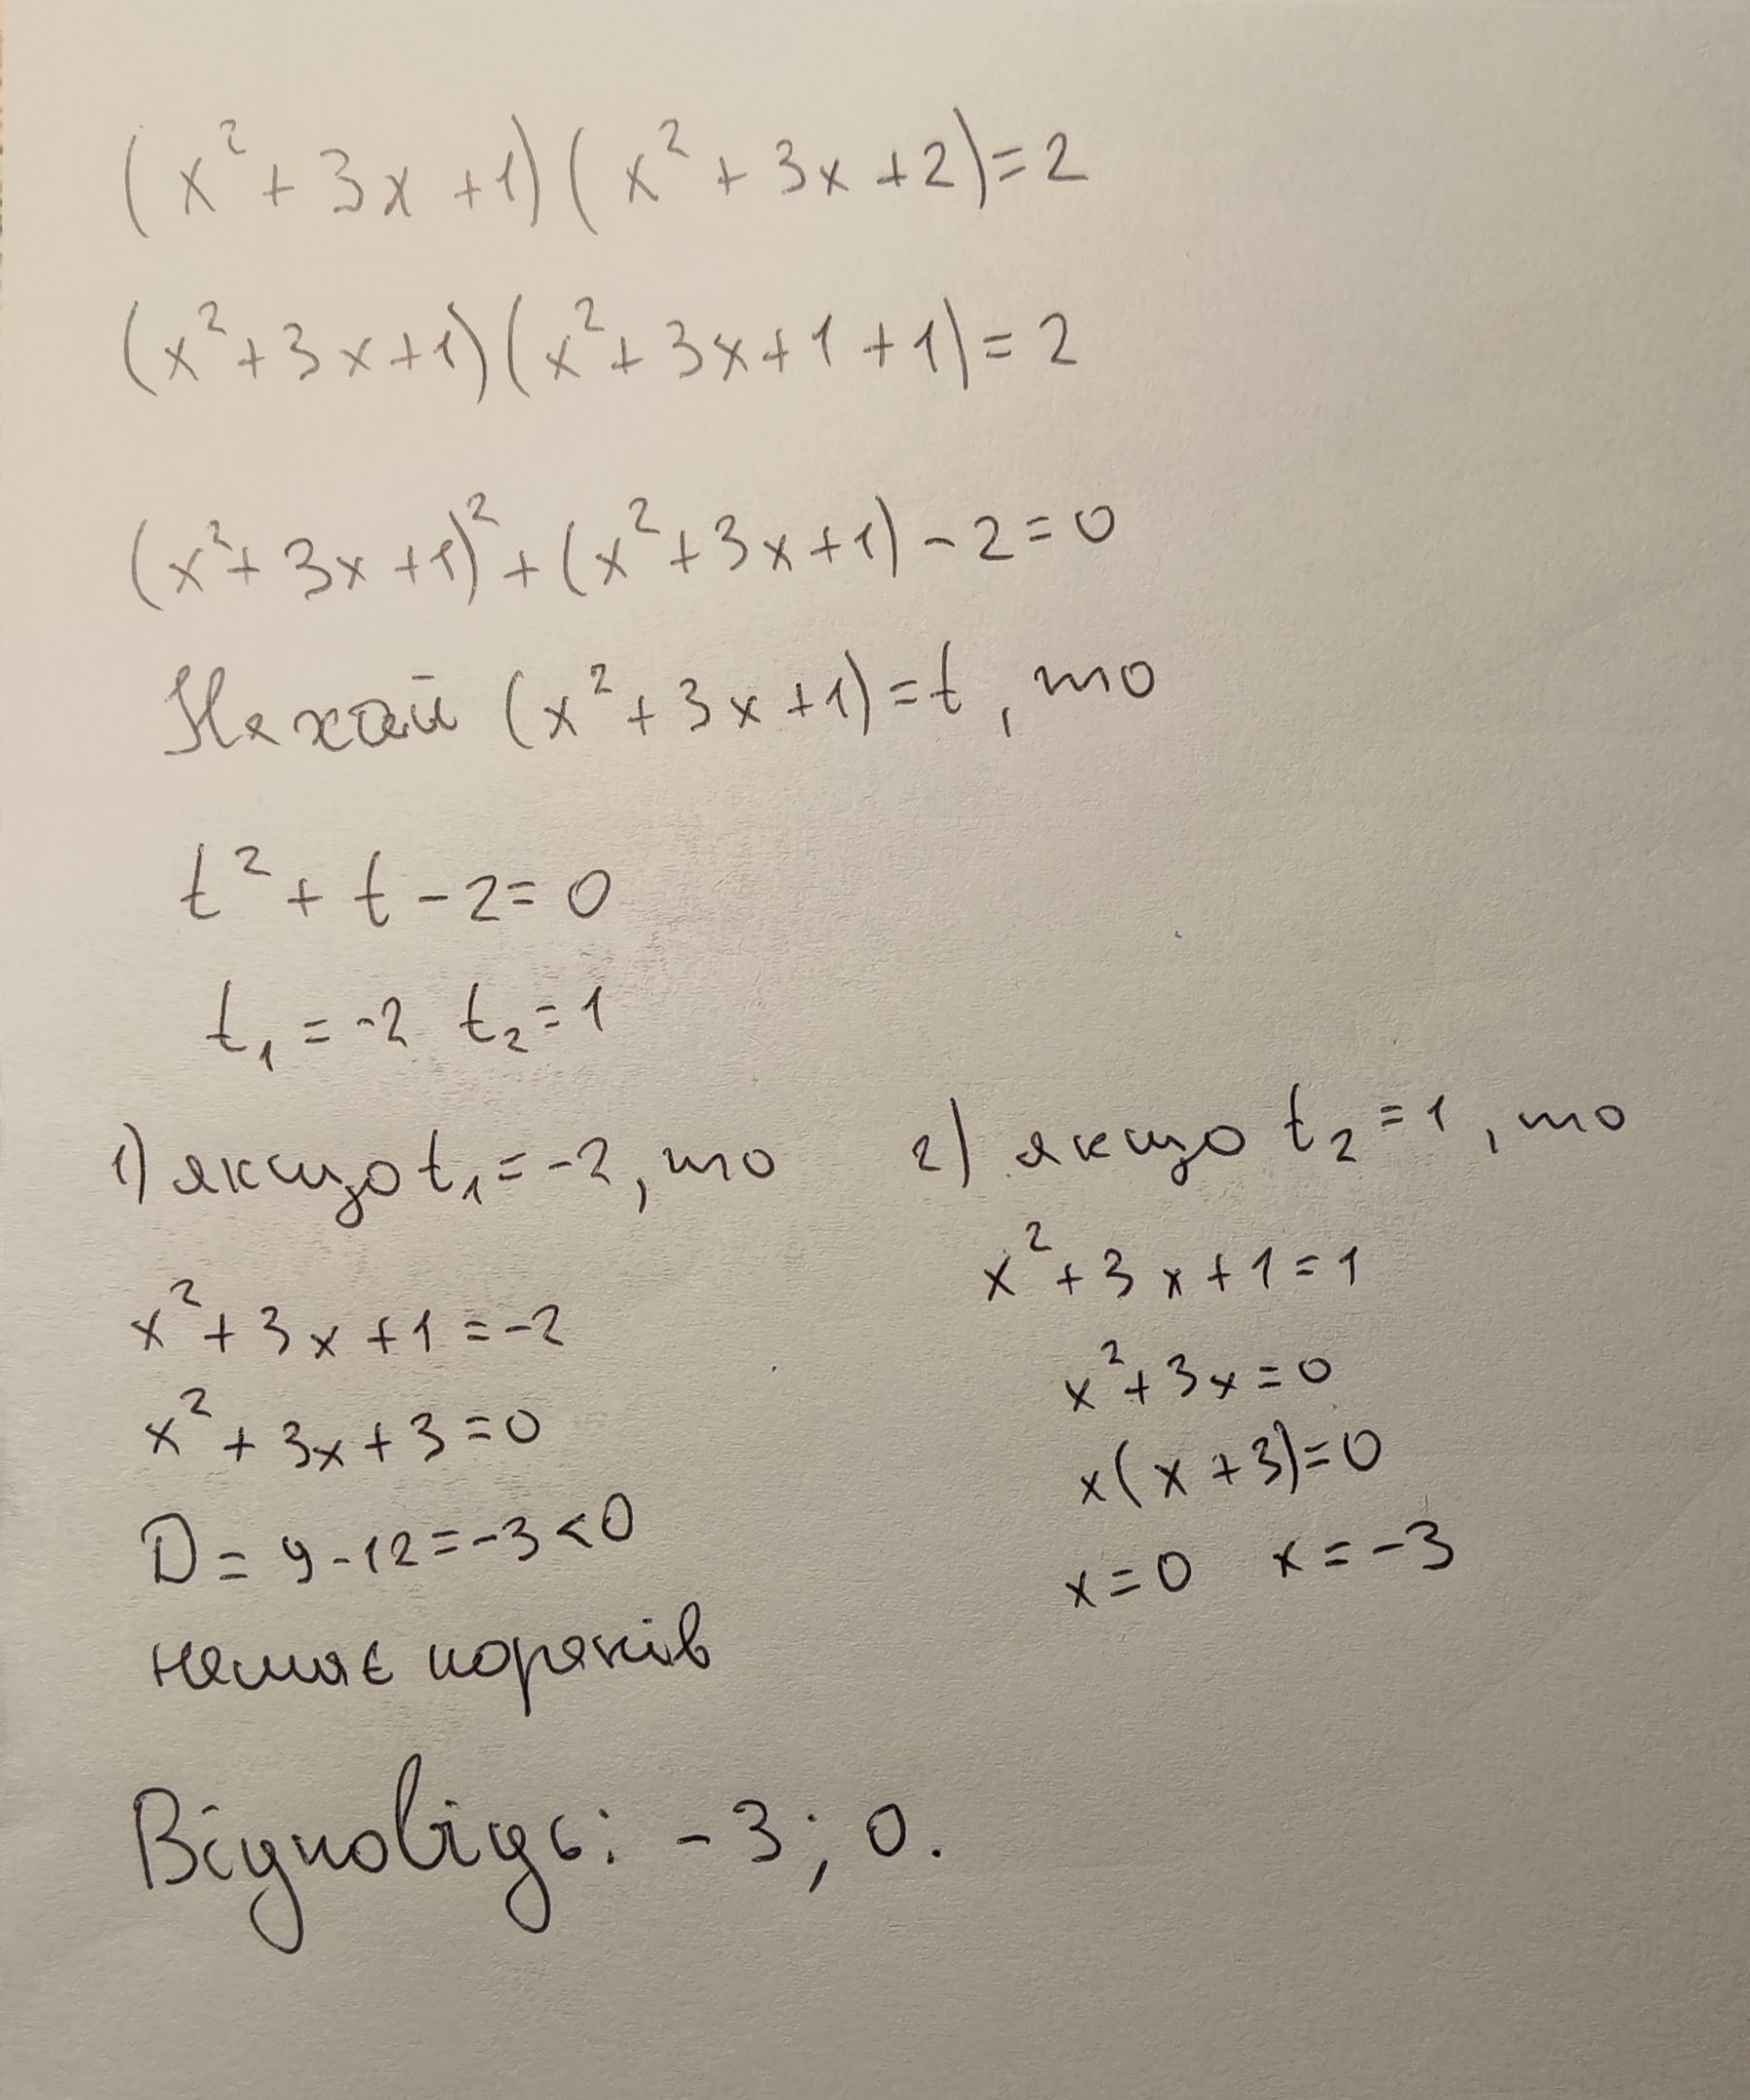 (x²+3x+1)(x²+3x+2)=2
(x²+3x+1)(x²+3x+1+1)=2
(x²+3x+1)²+(x²+3x+1)-2=0
Нехай (x²+3x+1)=t, то
t²+t-2=0
t₁=-2 t₂=1
1) якщо t₁=-2, то
x²+3x+1=-2
x²+3x+3=0
D=9-12=-3<0
немає коренів
2) якщо t₂=1, то
x²+3x+1=1
x²+3x=0
x(x+3)=0
x=0 x=-3
Відповідь: -3; 0.